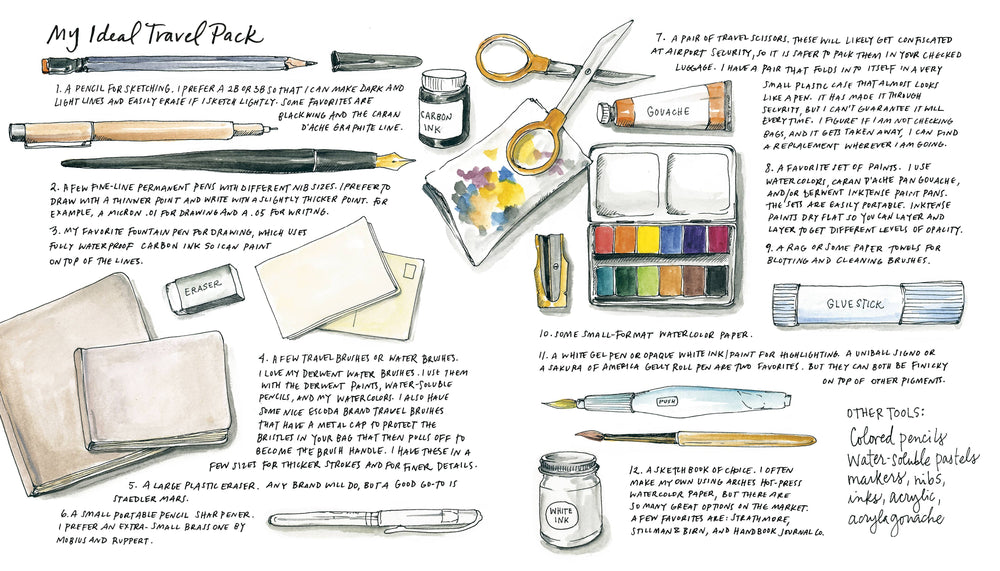 My Ideal Travel Pack
1. A PENCIL FOR SKETCHING. I PREFER A 2B OR 3B SO THAT I CAN MAKE DARK AND
LIGHT LINES AND EASILY ERASE IF I SKETCH LIGHTLY. SOME FAVORITES ARE
BLACKWING AND THE CARAN
D'ACHE GRAPHITE LINE.
2. A FEW FINE-LINE PERMANENT PENS WITH DIFFERENT NIB SIZES. I PREFER TO
DRAW WITH A THINNER POINT AND WRITE WITH A SLIGHTLY THICKER POINT. FOR
EXAMPLE, A MICRON .01 FOR DRAWING AND A .05 FOR WRITING.
3. MY FAVORITE FOUNTAIN PEN FOR DRAWING, WHICH USES
FULLY WATERPROOF CARBON INK SO I CAN PAINT
ON TOP OF THE LINES.
CARBON
INK
ERASER
4. A FEW TRAVEL BRUSHES OR WATER BRUSHES.
I LOVE MY DERWENT WATER BRUSHES. I USE THEM
WITH THE DERWENT PAINTS, WATER-SOLUBLE
PENCILS, AND MY WATERCOLORS. I ALSO HAVE
SOME NICE ESCODA BRAND TRAVEL BRUSHES
THAT HAVE A METAL CAP TO PROTECT THE
BRISTLES IN YOUR BAG THAT THEN PULLS OFF TO
BECOME THE BRUSH HANDLE. I HAVE THESE IN A
FEW SIZES FOR THICKER STROKES AND FOR FINER DETAILS.
5. A LARGE PLASTIC ERASER. ANY BRAND WILL DO, BUT A GOOD GO-TO IS
STAEDLER MARS.
6. A SMALL PORTABLE PENCIL SHARPENER.
I PREFER AN EXTRA-SMALL BRASS ONE BY
MOBIUS AND RUPPERT.
7. A PAIR OF TRAVEL SCISSORS. THESE WILL LIKELY GET CONFISCATED
AT AIRPORT SECURITY, SO IT IS SAFER TO PACK THEM IN YOUR CHECKED
LUGGAGE. I HAVE A PAIR THAT FOLDS INTO ITSELF IN A VERY
SMALL PLASTIC CASE THAT ALMOST LOOKS
LIKE A PEN. IT HAS MADE IT THROUGH
SECURITY, BUT I CAN'T GUARANTEE IT WILL
EVERY TIME. I FIGURE IF I AM NOT CHECKING
BAGS, AND IT GETS TAKEN AWAY, I CAN FIND
A REPLACEMENT WHEREVER I AM GOING.
GOUACHE
8. A FAVORITE SET OF PAINTS. I USE
WATERCOLORS, CARAN D'ACHE PAN GOUACHE,
AND/OR DERWENT INKTENSE PAINT PANS.
THE SETS ARE EASILY PORTABLE. INKTENSE
PAINTS DRY FLAT SO YOU CAN LAYER AND
LAYER TO GET DIFFERENT LEVELS OF OPACITY.
9. A RAG OR SOME PAPER TOWELS FOR
BLOTTING AND CLEANING BRUSHES.
GLUE STICK
10. SOME SMALL-FORMAT WATERCOLOR PAPER.
11. A WHITE GEL PEN OR OPAQUE WHITE INK/PAINT FOR HIGHLIGHTING. A UNIBALL SIGNO OR
A SAKURA OF AMERICA GELLY ROLL PEN ARE TWO FAVORITES. BUT THEY CAN BOTH BE FINICKY
ON TOP OF OTHER PIGMENTS.
PUSH
12. A SKETCHBOOK OF CHOICE. I OFTEN
MAKE MY OWN USING ARCHES HOT-PRESS
WATERCOLOR PAPER, BUT THERE ARE
SO MANY GREAT OPTIONS ON THE MARKET.
A FEW FAVORITES ARE: STRATHMORE,
STILLMAN & BIRN, AND HANDBOOK JOURNAL CO.
WHITE
INK
OTHER TOOLS:
Colored pencils
Water-soluble pastels
markers, nibs,
inks, acrylic,
acryla gouache